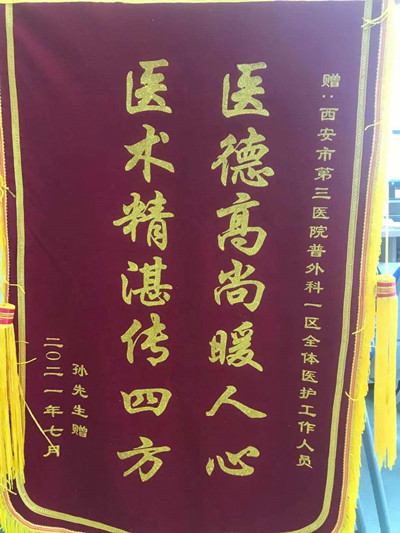 赠：西安市第三医院普外科一区全体医护工作人员
医德高尚暖人心
医术精湛传四方
孙先生赠
二〇二一年七月